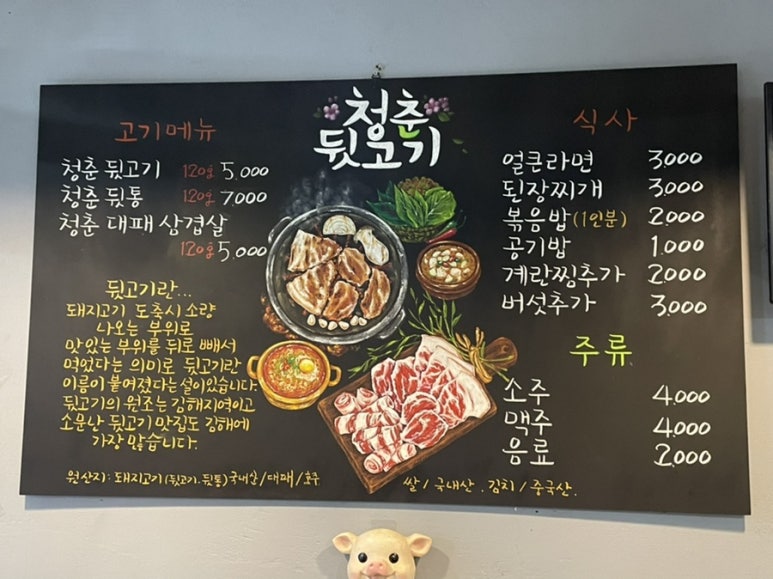 청춘
뒷고기
고기메뉴
청춘 뒷고기 120g 5,000
청춘 뒷통 120g 7,000
청춘 대패 삼겹살
120g 5,000
뒷고기란...
돼지고기 도축시 소량
나오는 부위로
맛있는 부위를 뒤로 빼서
먹었다는 의미로 뒷고기란
이름이 붙여졌다는 설이있습니다.
뒷고기의 원조는 김해지역이고
소문난 뒷고기 맛집도 김해에
가장 많습니다.
원산지: 돼지고기(뒷고기.뒷통)국내산/대패/호주
식사
얼큰라면 3,000
된장찌개 3,000
볶음밥(1인분) 2,000
공기밥 1,000
계란찜추가 2,000
버섯추가 3,000
주류
소주 4,000
맥주 4,000
음료 2,000
쌀/국내산.김치/중국산.